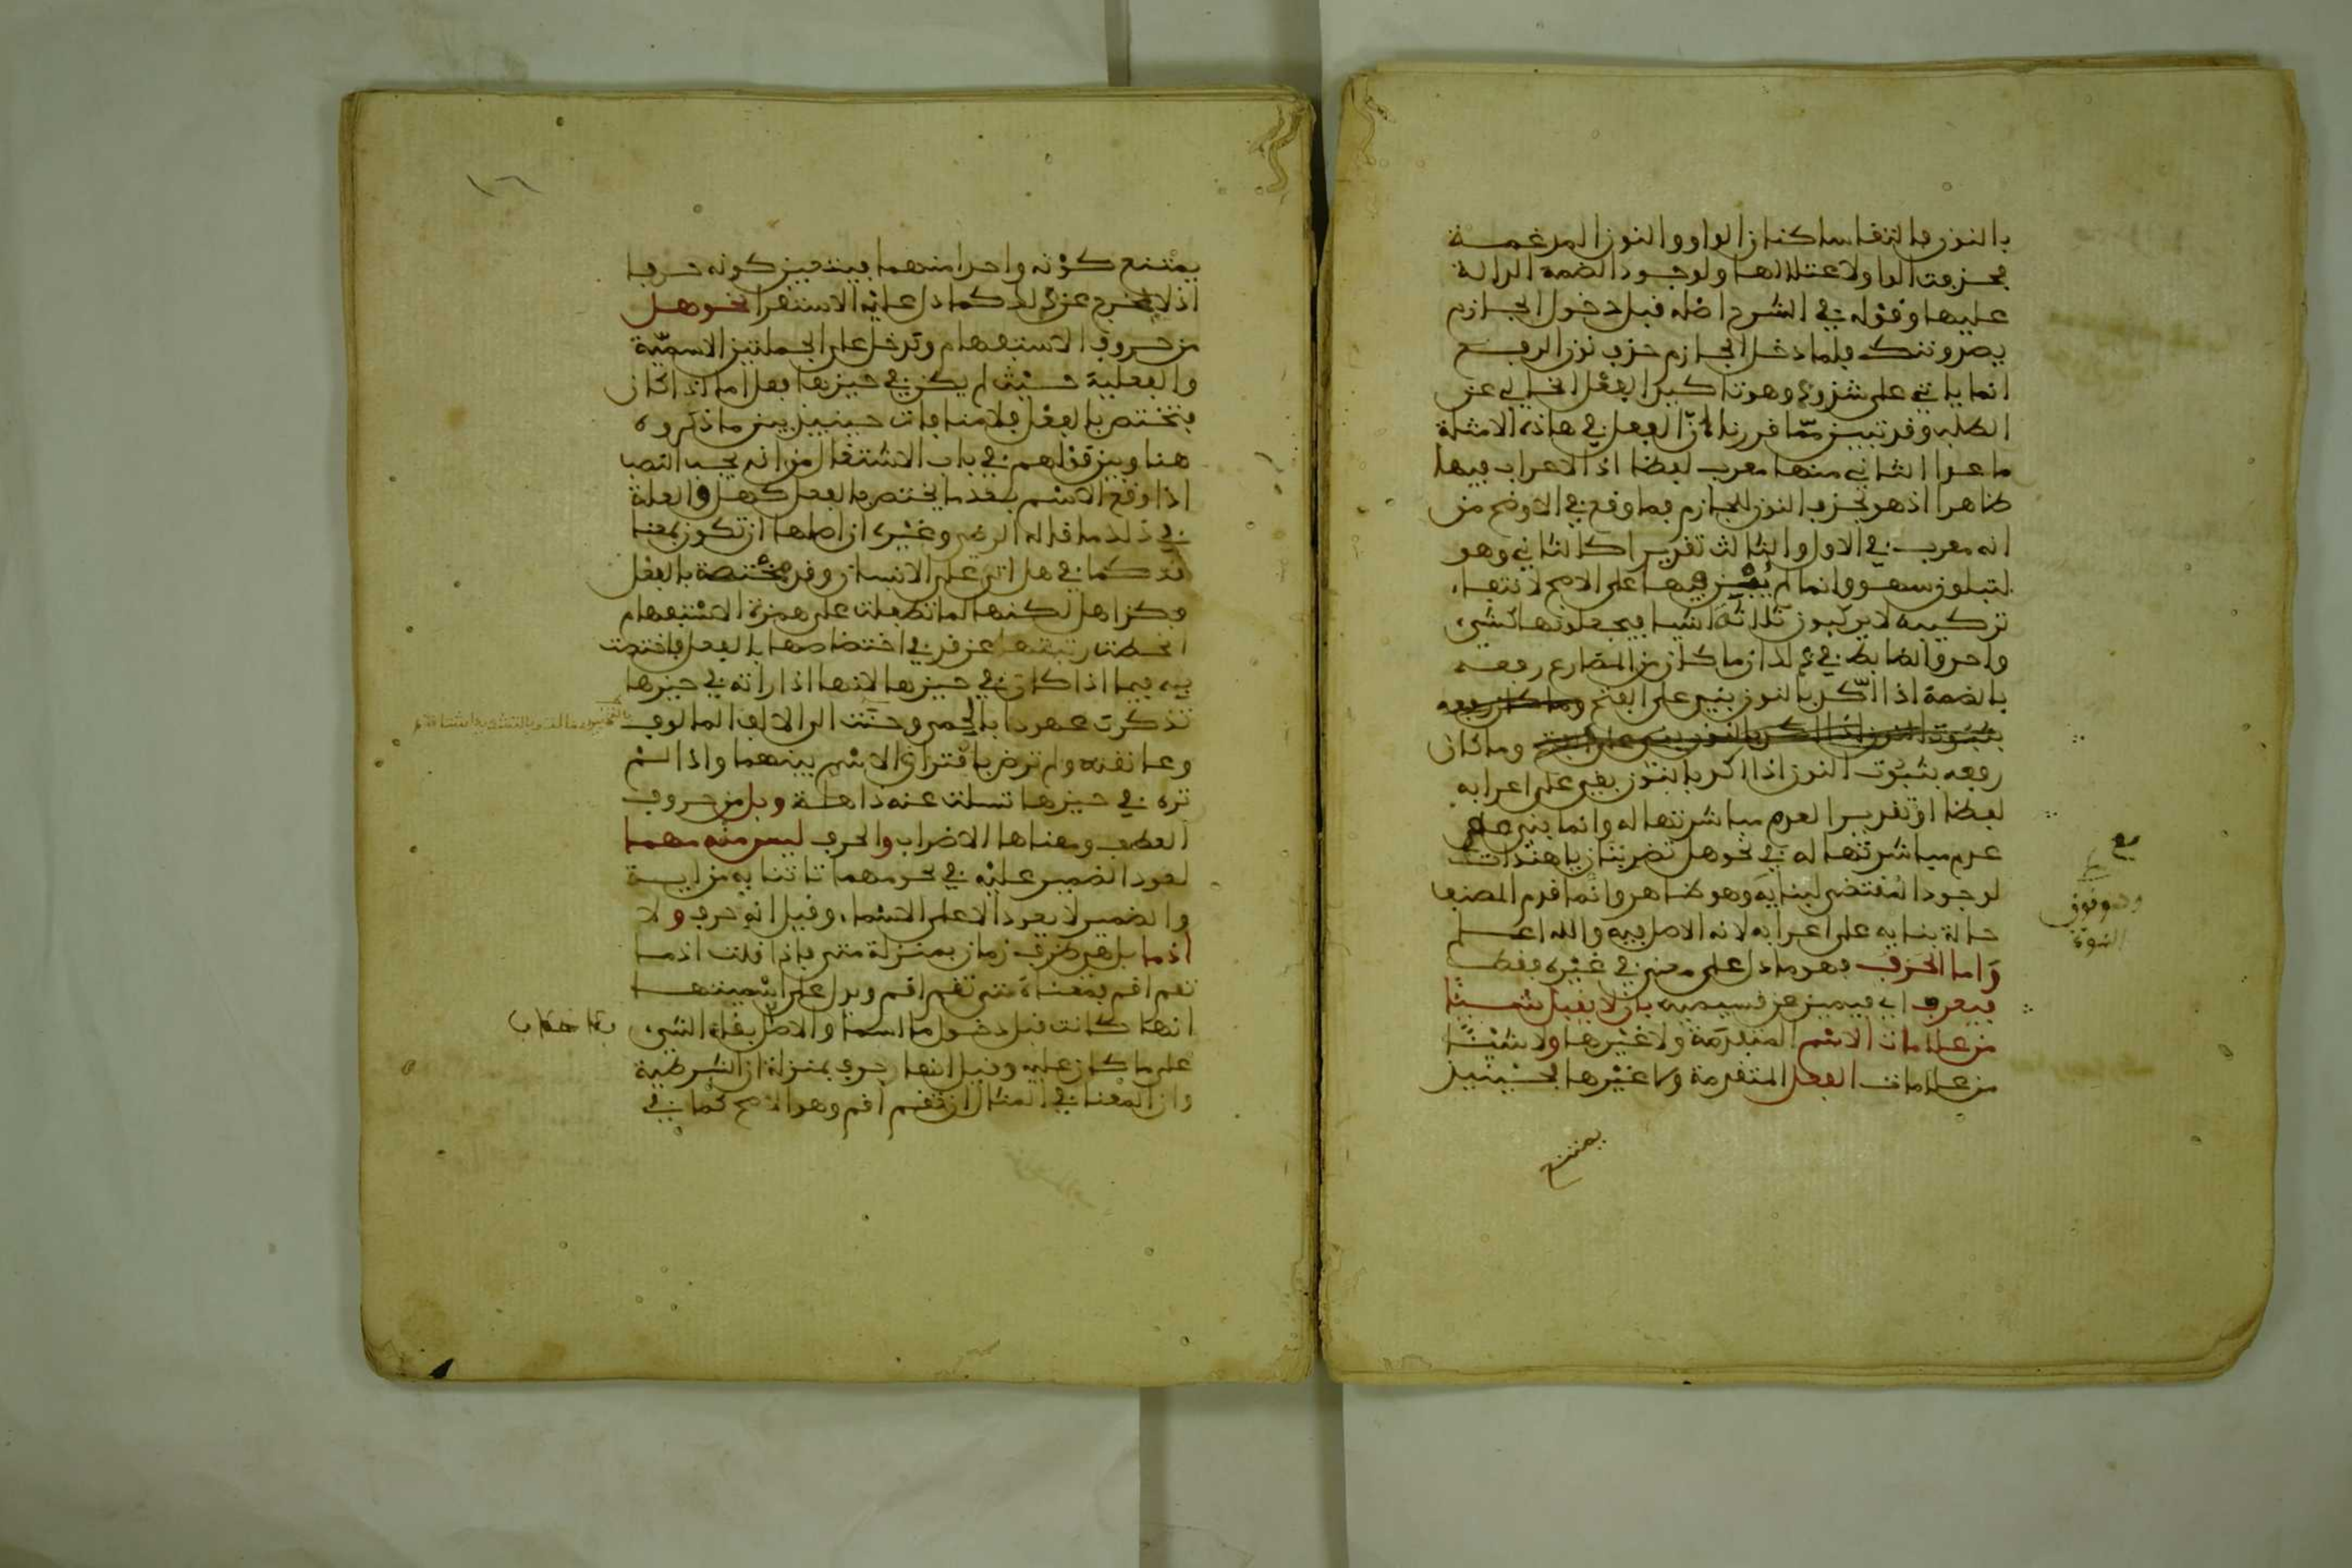 بالنون فالتقا ساكنان الواو والنون المدغمة
فحذفت الواو لاعتلالها ولوجود الضمة الدالة
عليها وقوله في الشرح اصله قبل دخول الجازم
يصدوننك فلما دخل الجازم حذف نون الرفع
انما ياتي على شذوذ وهو تاكيد الفعل الخالي عن
الطلب وقد تبين مما قررنا ان الفعل في هاذه الامثلة
ما عدا الثاني منها معرب لفظا اذ الاعراب فيها
ظاهرا اذ هو بحذف النون للجازم فما وقع في الاوضح من
انه معرب في الاول والثالث تقديرا كالثاني وهو
لتبلون سهو وانما لم يبن فيها على الاصح لانتفاء
تركيبه لا يركبون ثلاثة اشيا فيجعلونها كشيء
واحد والضابط في ذلك ان ما كان من المضارع رفعه
بالضمة اذا اكد بالنون بني على الفتح وما كان رفعه
بثبوت النون اذا اكد بالنون بني على الفتح وما كان
رفعه بثبوت النون اذا اكد بالنون بقي على اعرابه
لفظا او تقديرا لعدم مباشرتها له وانما بني على
عدم مباشرتها له في نحو هل تضربنان ياهندات
لوجود المقتضى لبنايه وهو ظاهر وانما قدم المصنف
حالة بنايه على اعرابه لانه الاصل فيه والله اعلم
واما الحرف فهو ما دل على معنى في غيره فقط
فيعرف اي فيميز عن قسيميه بان لا يقبل شيئا
من علامات الاسم المتقدمة ولا غيرها ولا شيئا
من علامات الفعل المتقدمة ولا غيرها فحينيذ
يمتنع
مع
وهو نون
النسوة
١٦
يمتنع كونه واحدا منهما فيتعين كونه حرفا
اذ لا مخرج عن ذلك كما دل عليه الاستقرا نحو هل
من حروف الاستفهام وتدخل على الجملتين الاسمية
والفعلية حيث لم يكن في حيزها فعل اما اذا كان
فتختص بالفعل فلا منافات حينيذ بين ما ذكروه
هنا وبين قولهم في باب الاشتغال من انه يجب النصب
اذا وقع الاسم بعد ما يختص بالفعل كهل والعلة
في ذلك ما قاله الرضي وغيره ان اصلها ان تكون بمعنا
قد كما في هل اتى على الانسان وقد مختصة بالفعل
فكذا هل لكنها لما تطفلت على همزة الاستفهام
انحطت رتبتها عن قد في اختصاصها بالفعل فاختصت
به فيما اذا كان في حيزها لانها اذا راته في حيزها
تذكرت عهودا بالحمى وحنت الى الالف المالوف
وعانقته ولم ترض بافتراق الاسم بينهما واذا لم
تره في حيزها تسلت عنه ذاهلة وبل من حروف
العطف ومعناها الاضراب والحرف ليس منه مهما
لعود الضمير عليه في نحو مهما تاتنا به من اية
والضمير لا يعود الا على الاسماء وقيل انه حرف ولا
اذما بل هي ظرف زمان بمنزلة متى فاذا قلت اذما
تقم اقم فمعناه متى تقم اقم ويدل على اسميتها
انها كانت قبل دخول ما اسما والاصل بقاء الشيء
على ما كان عليه وقيل انها حرف بمنزلة ان الشرطية
وان المعنا في المثال ان تقم اقم وهو الاصح كما في